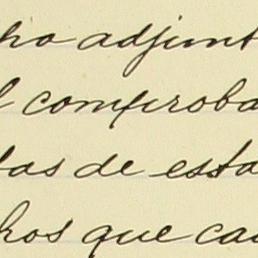 ho adjunt
l comproba
das de esta
hos que cau